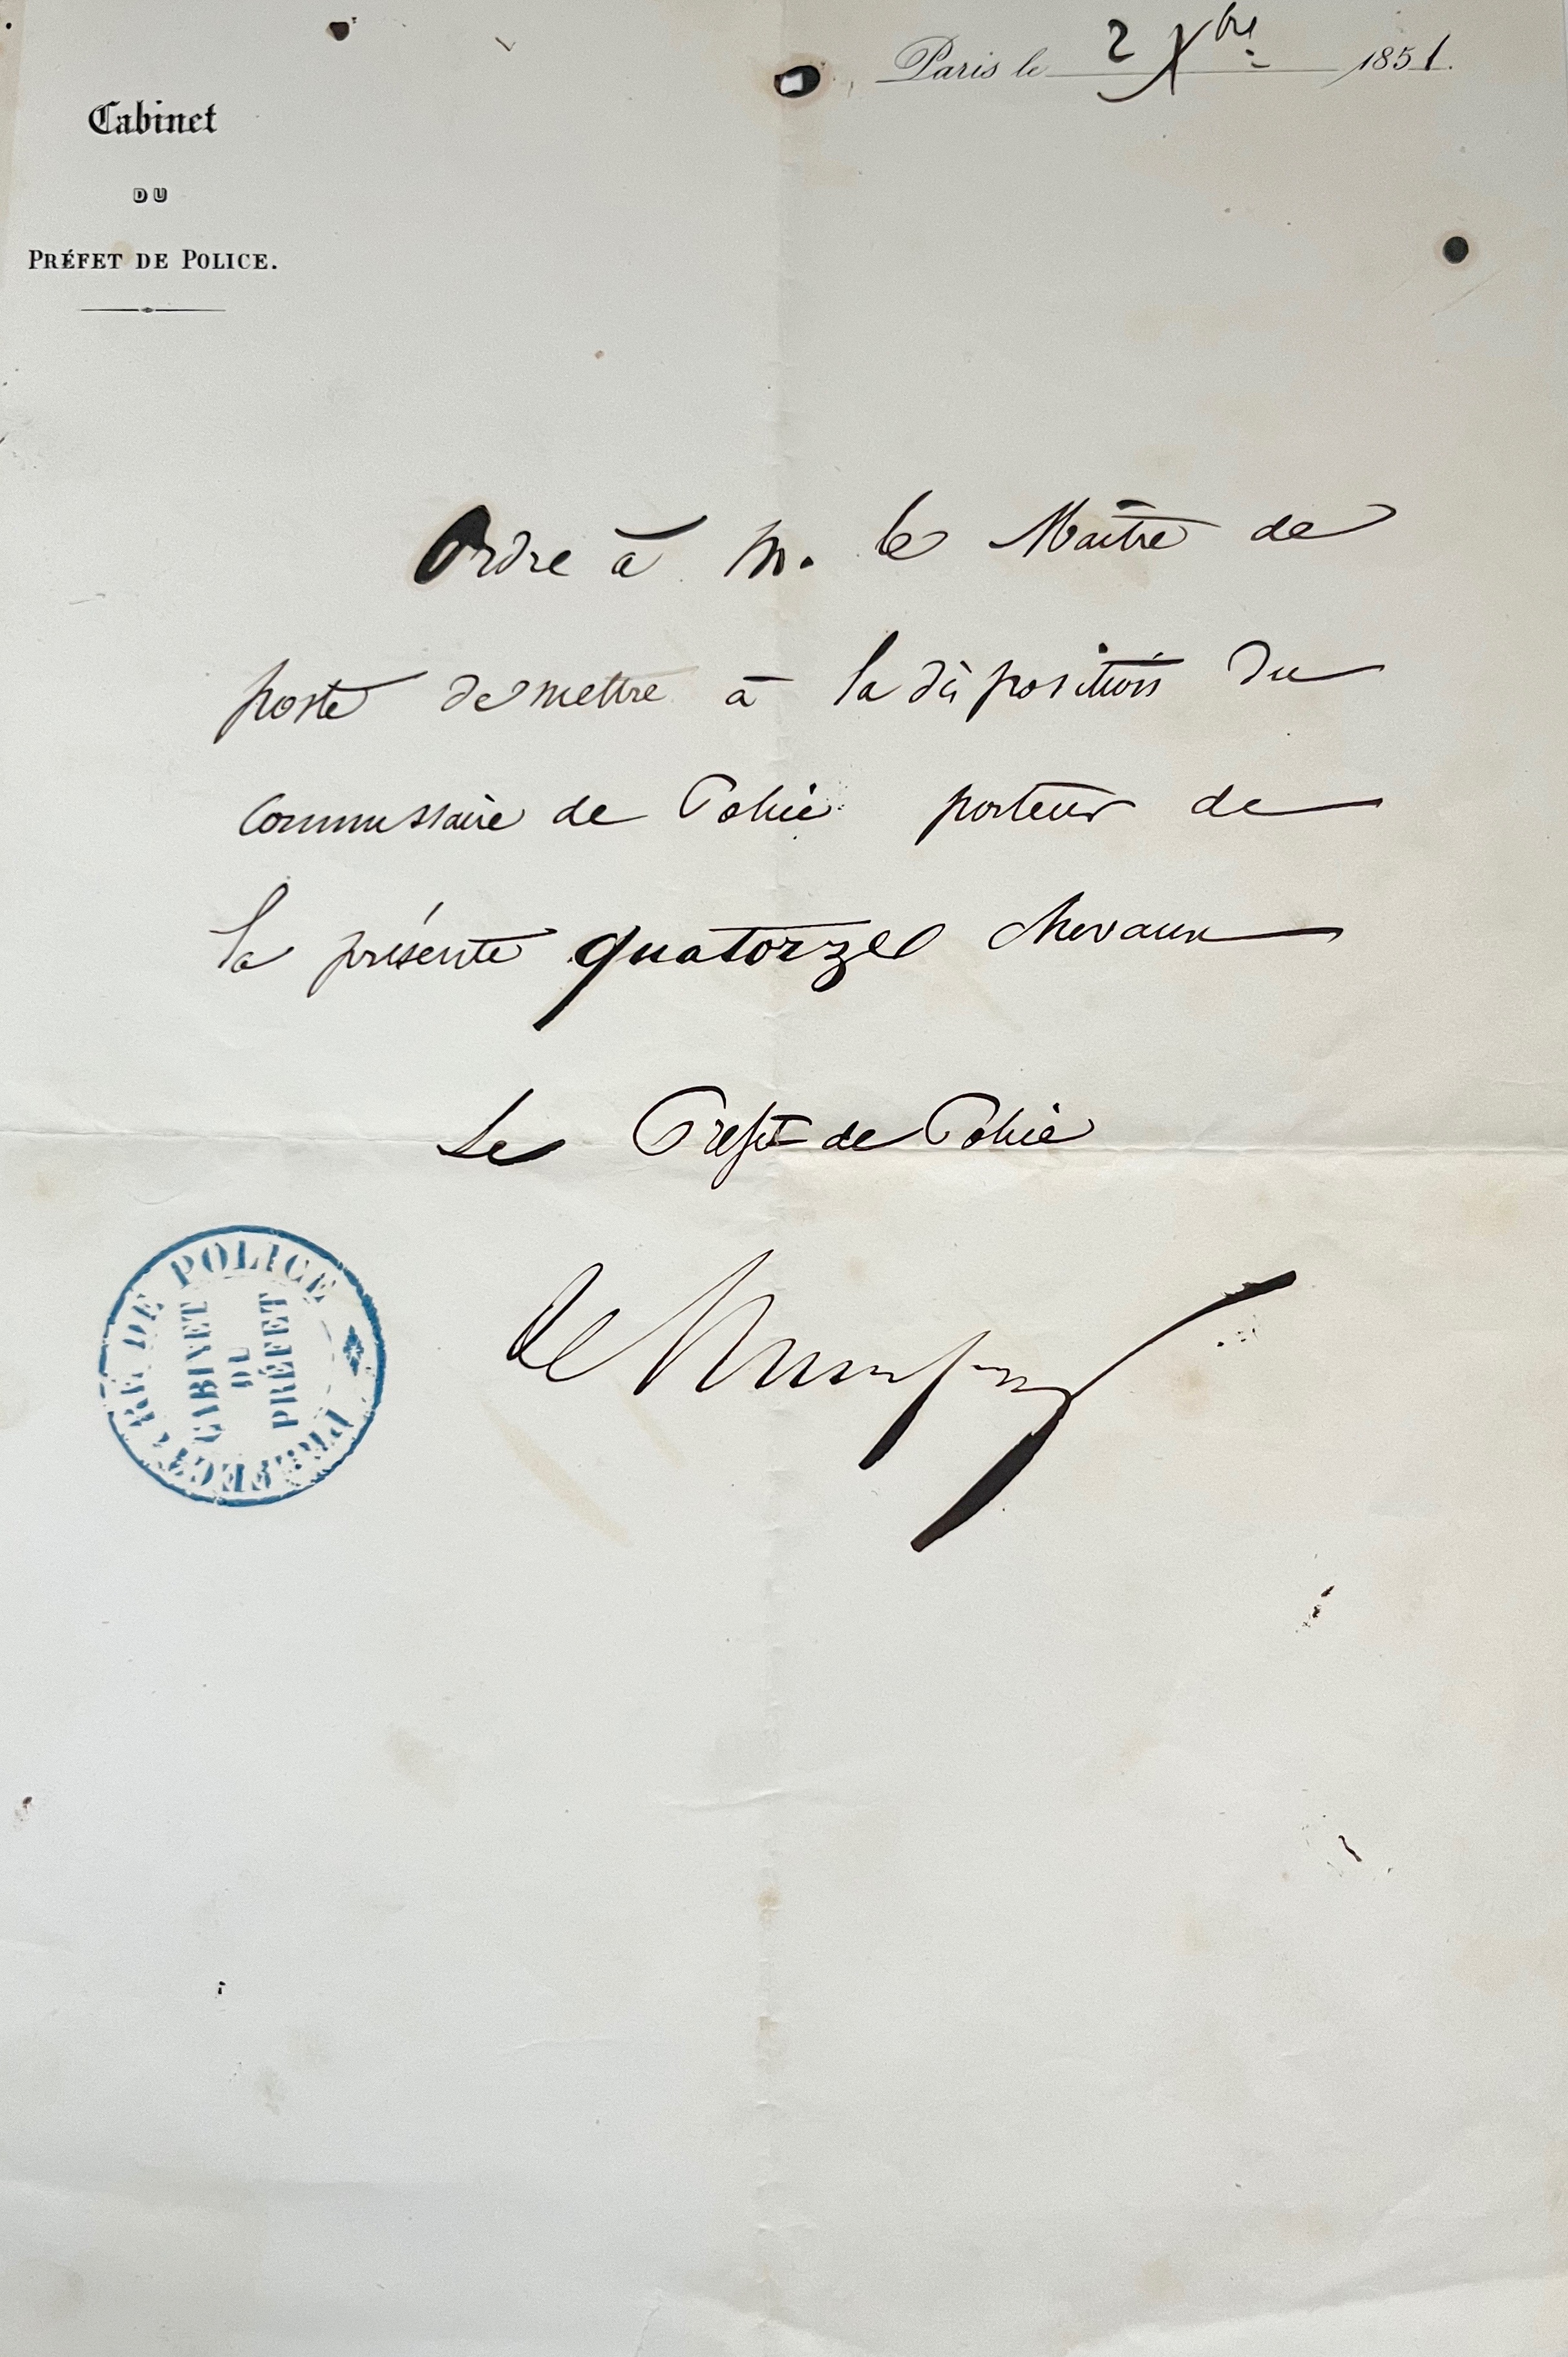 Cabinet
DU
PRÉFET DE POLICE.
Paris le 2 Xbre 1851.
Ordre à M. le Maître de
poste de mettre à la disposition du
Commissaire de Police porteur de
la présente quatorze chevaux
Le Préfet de Police
de Maupas
PRÉFECTURE DE POLICE
CABINET
DU
PRÉFET